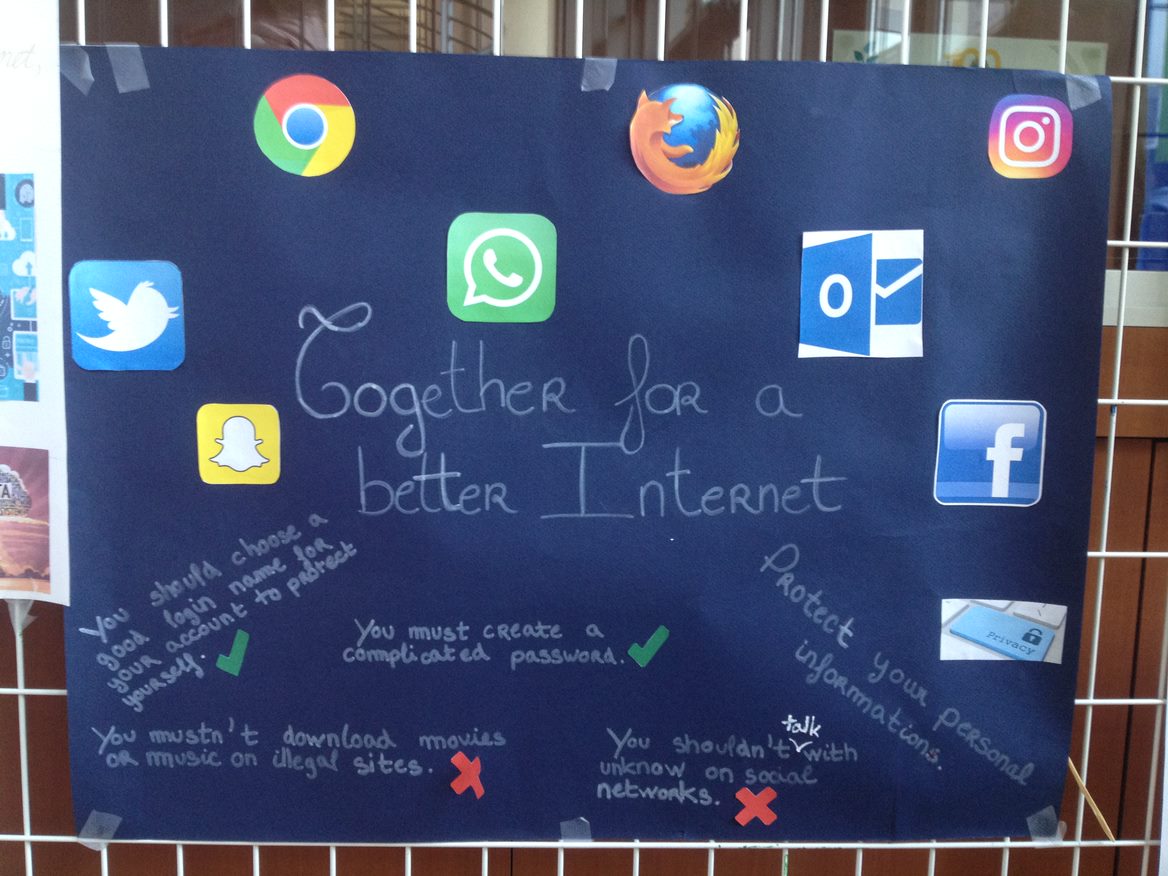 Together for a
better Internet
You should choose a
good login name for
your account to protect
yourself.
You must create a
complicated password.
Protect your personal
informations.
Privacy
You mustn't download movies
or music on illegal sites.
You shouldn't talk with
unknow on social
networks.